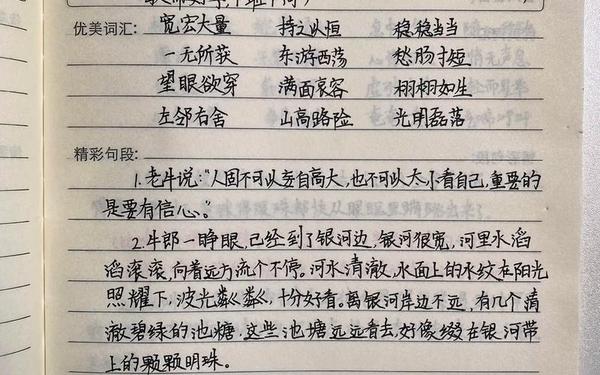 优美词汇: 宽宏大量 持之以恒 稳稳当当
一无所获 东游西荡 愁肠寸短
望眼欲穿 满面哀容 栩栩如生
左邻右舍 山高路险 光明磊落
精彩句段:
1.老牛说:“人固不可以妄自高大,也不可以太小看自己,重要的
是要有信心。”
2.牛郎一睁眼,已经到了银河边,银河很宽,河里水滔
滔滚滚,向着远方流个不停。河水清澈,水面上的水纹在阳光
照耀下,波光粼粼,十分好看。离银河岸边不远,有几个清
澈碧绿的池塘,这些池塘远远看去,好像缀在银河带
上的颗颗明珠。